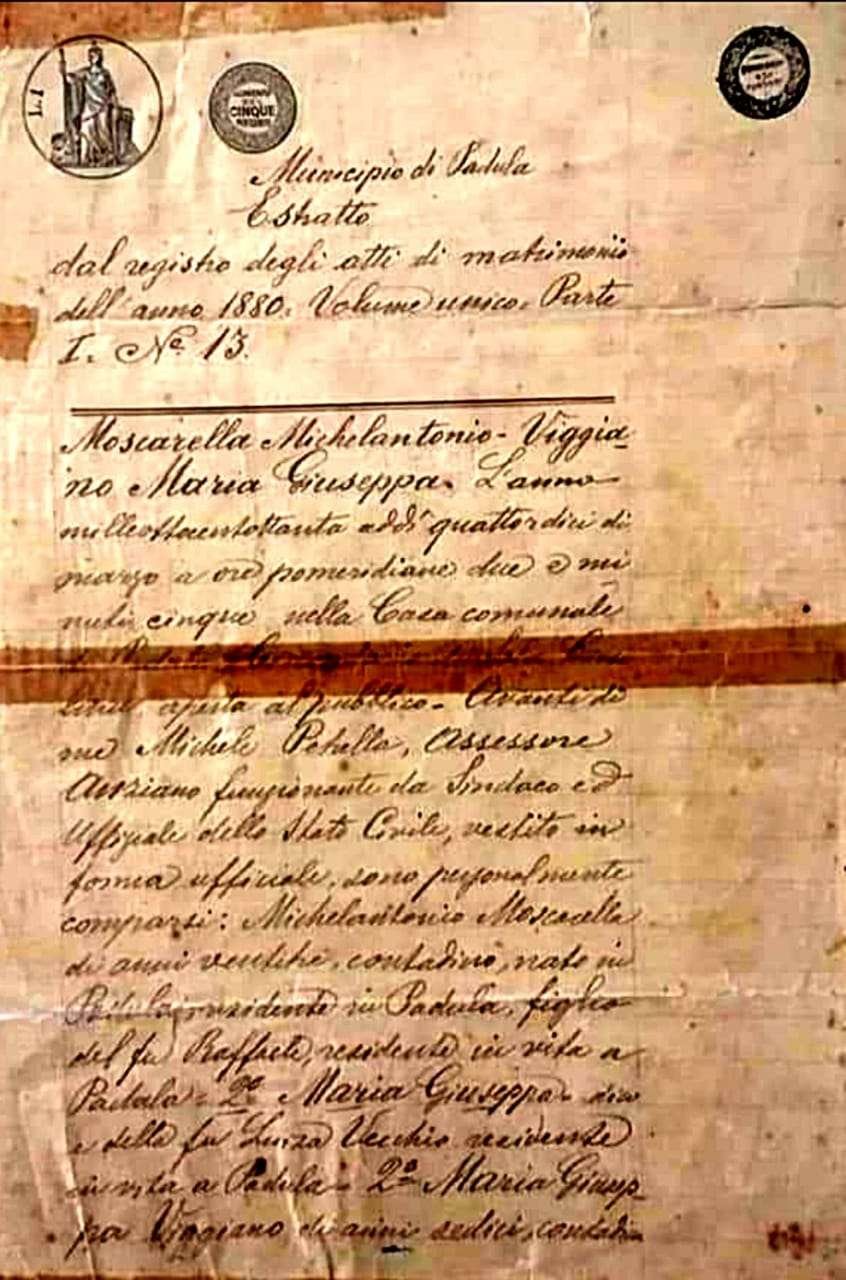 L. 1
CINQUE
Municipio di Padula
Estratto
dal registro degli atti di matrimonio
dell'anno 1880. Volume unico. Parte
I. No. 13.
Moscarella Michelantonio - Viggia
no Maria Giuseppa. L'anno
milleottocentottanta addì quattordici di
marzo a ore pomeridiane due e mi
nuti cinque nella Casa comunale
aperta al pubblico. Avanti di
me Michele Petrella, Assessore
Anziano funzionante da Sindaco ed
Uffiziale dello Stato Civile, vestito in
forma ufficiale, sono personalmente
comparsi: Michelantonio Moscarella
di anni ventitre, contadino, nato in
Padula residente in Padula, figlio
del fu Raffaele, residente in vita a
Padula - 2o Maria Giuseppa - dico
e della fu Luiza Vecchio residente
in vita a Padula - 2o Maria Giusep
pa Viggiano di anni sedici, contadin